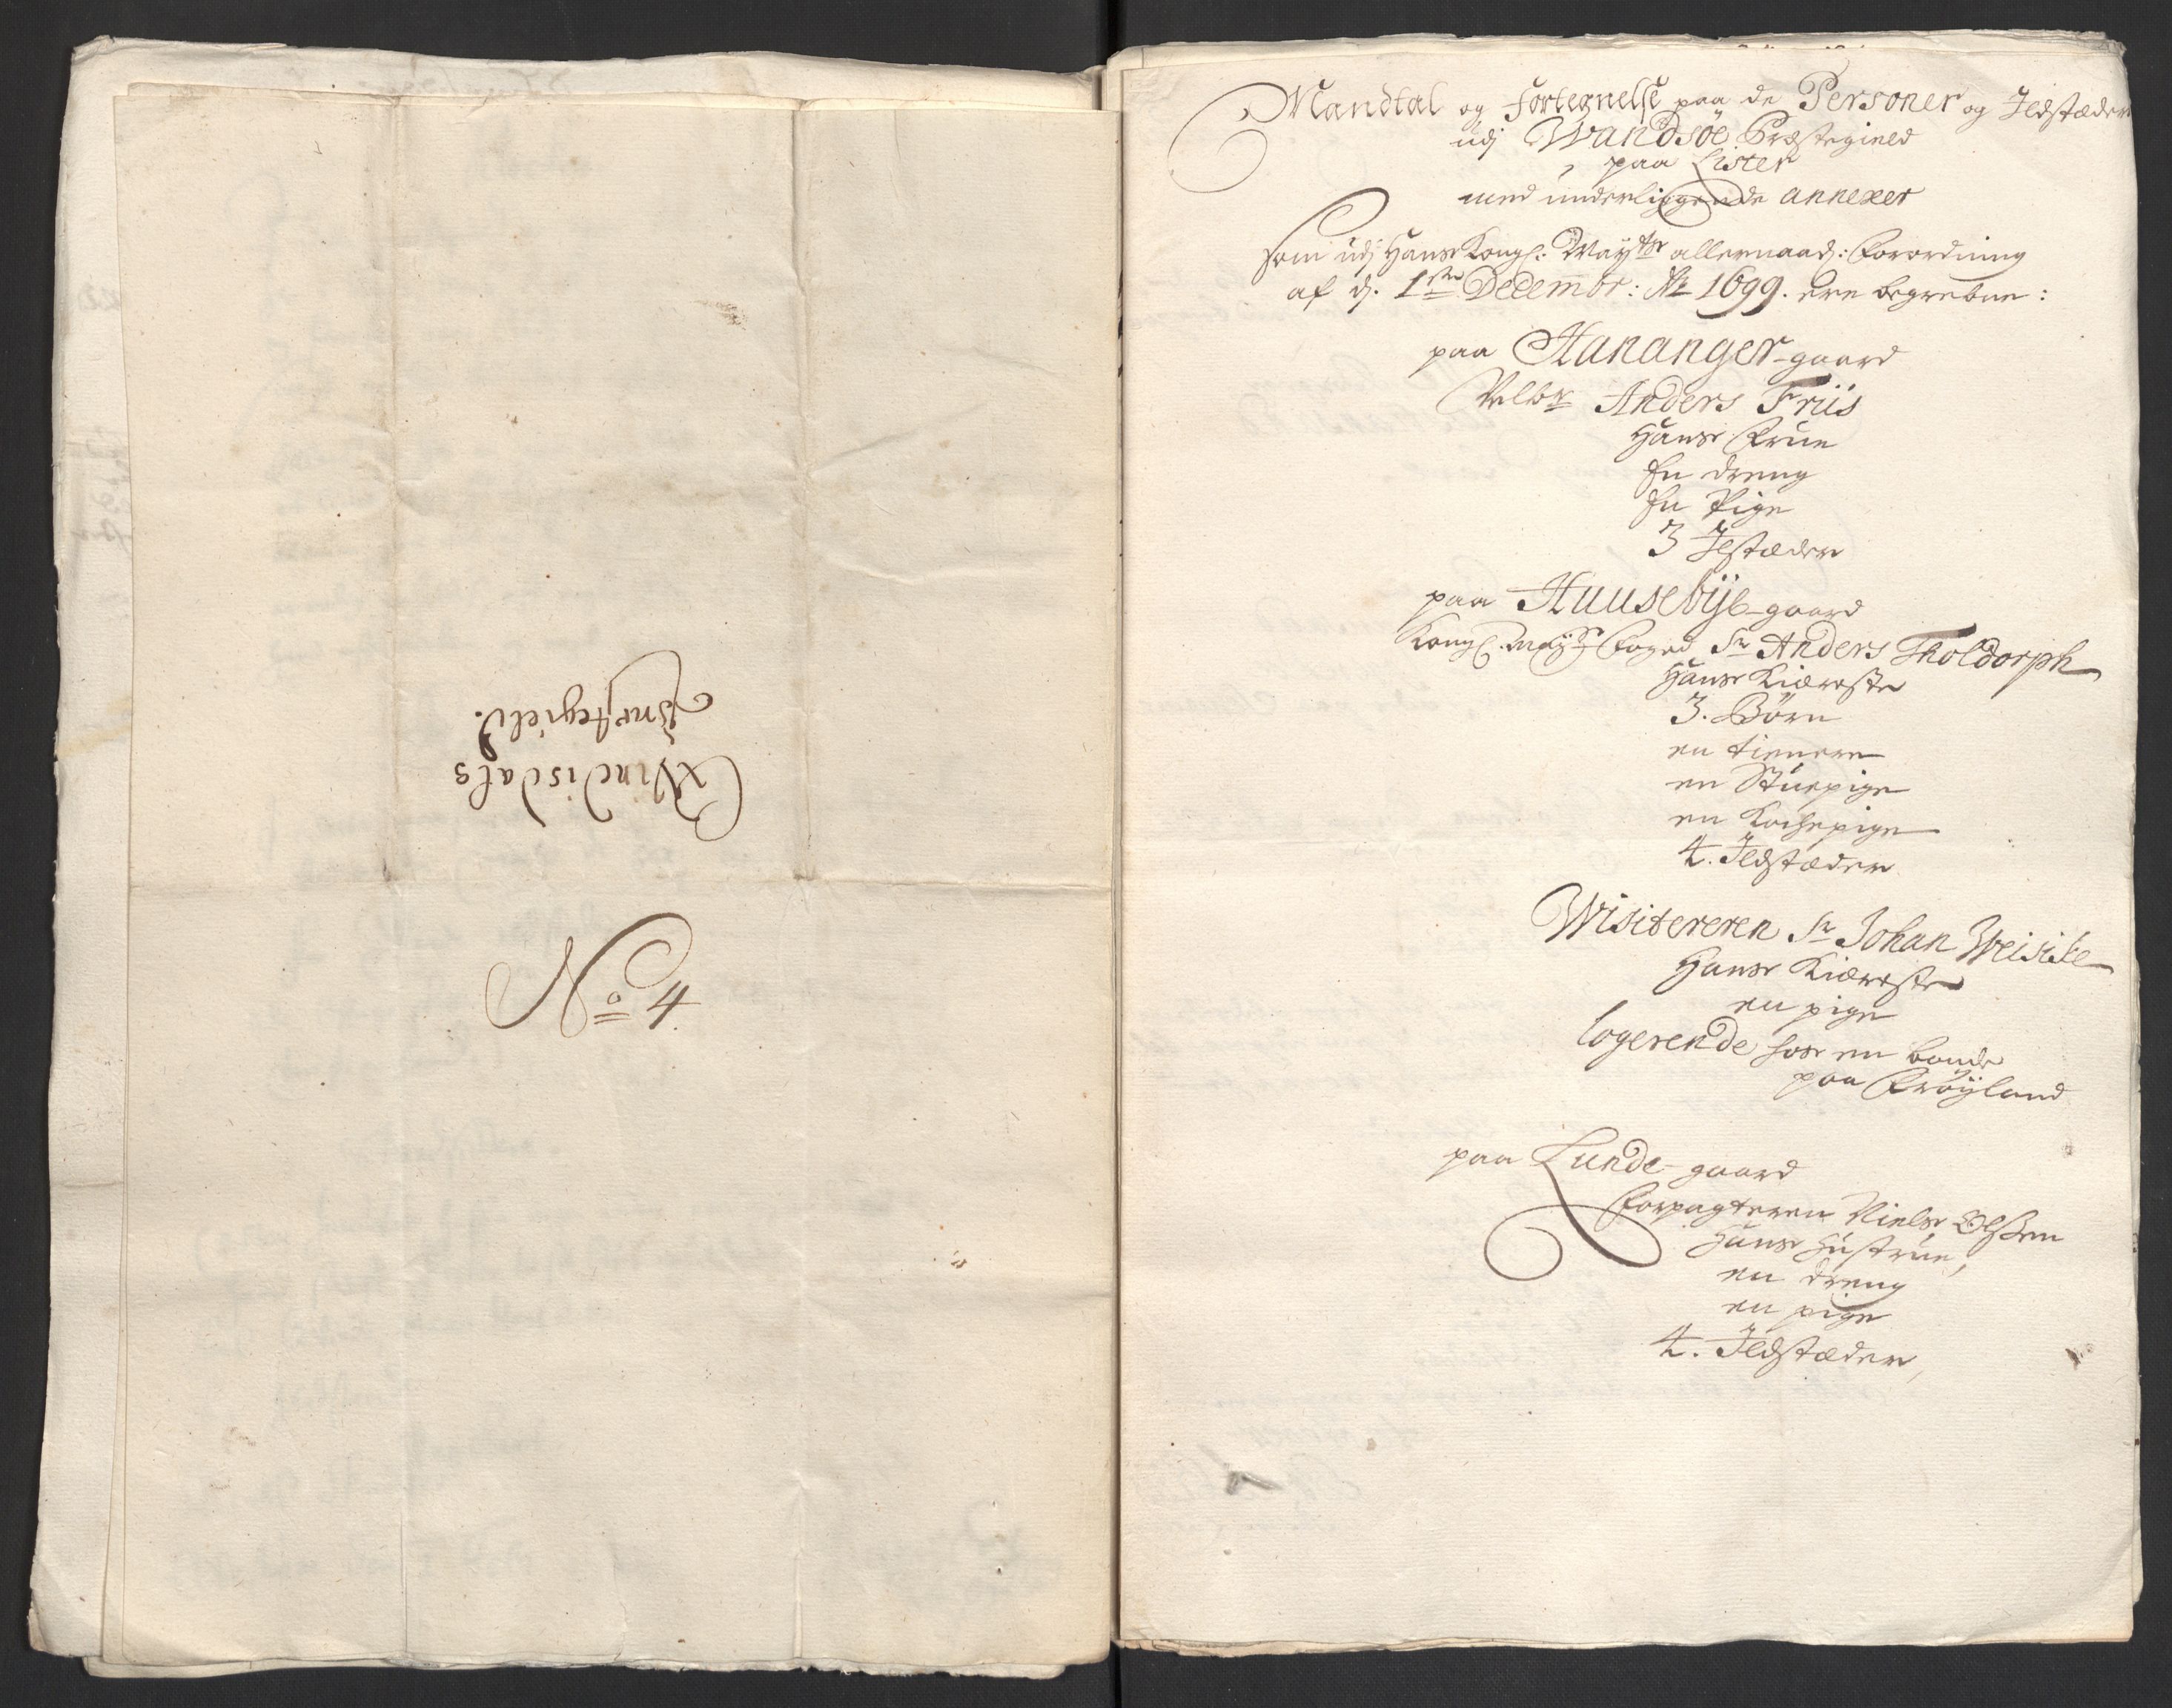 Qvindisdals
Præstegield.
No 4.
Mandtal og Fortegnelse paa de Personer og Ildstæder
udj Wandsöe Præstegield
paa Lister
med underliggende annexer
som udj Hans Kongl: Mayts allernaad: Forordning
af d. 1ste Decembr: Ao 1699. ere begrebne:
paa Hananger-gaard
Velbr Anders Friis
Hans Frue
En dreng
En Pige
3 Ilstæder
paa Huusebÿe-gaard
Kongl. Mayts Foged Sr Anders Tholdorph
Hans Kiæreste
3. Börn
en tienere
en Stuepige
en Kockepige
4. Ildstæder
Wisitereren Sr Johan Weisike
Hans Kiæreste
en pige
logerende hos en bonde
paa Fröÿland
paa Lunde-gaard
Forpagteren Niels Olßen
Hans Hustrue,
en dreng
en pige
4. Ildstæder,